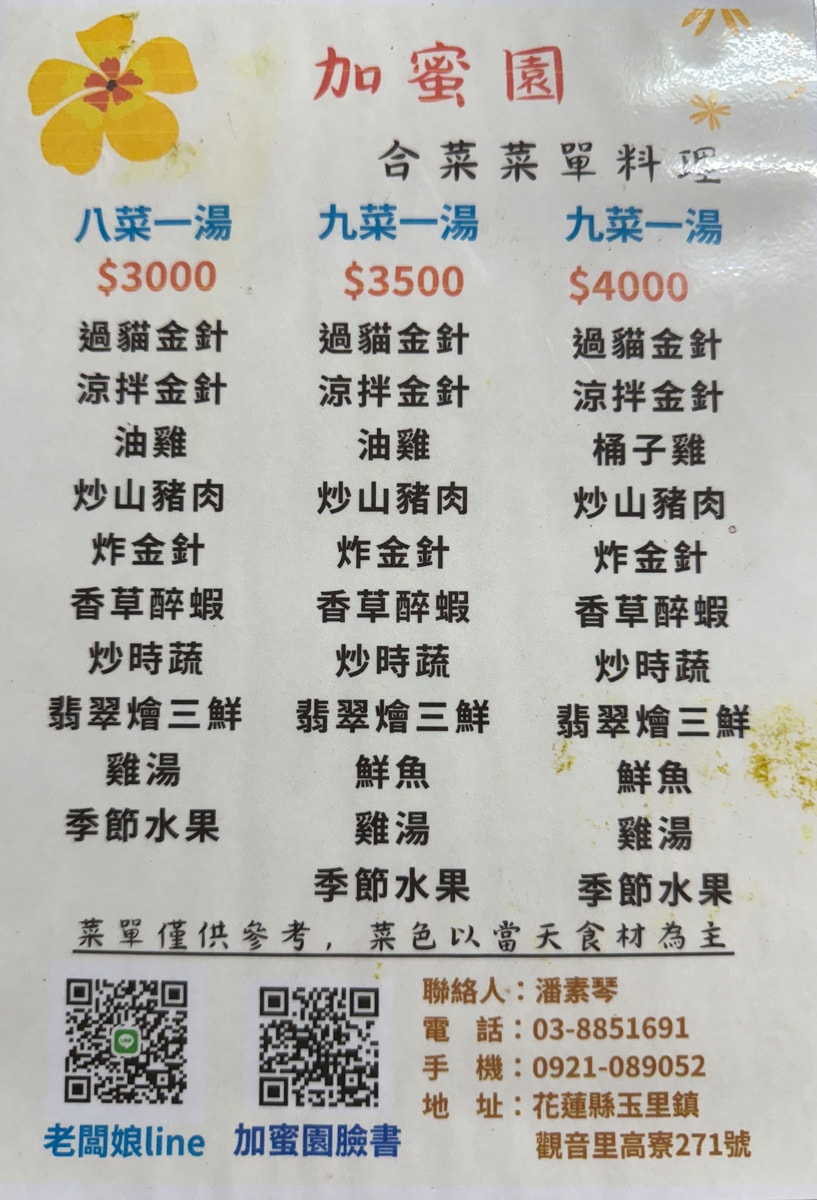 加蜜園
合菜菜單料理
八菜一湯
$3000
過貓金針
涼拌金針
油雞
炒山豬肉
炸金針
香草醉蝦
炒時蔬
翡翠燴三鮮
雞湯
季節水果
九菜一湯
$3500
過貓金針
涼拌金針
油雞
炒山豬肉
炸金針
香草醉蝦
炒時蔬
翡翠燴三鮮
鮮魚
雞湯
季節水果
九菜一湯
$4000
過貓金針
涼拌金針
桶子雞
炒山豬肉
炸金針
香草醉蝦
炒時蔬
翡翠燴三鮮
鮮魚
雞湯
季節水果
菜單僅供參考，菜色以當天食材為主
老闆娘line
加蜜園臉書
聯絡人：潘素琴
電 話：03-8851691
手 機：0921-089052
地 址：花蓮縣玉里鎮
觀音里高寮271號